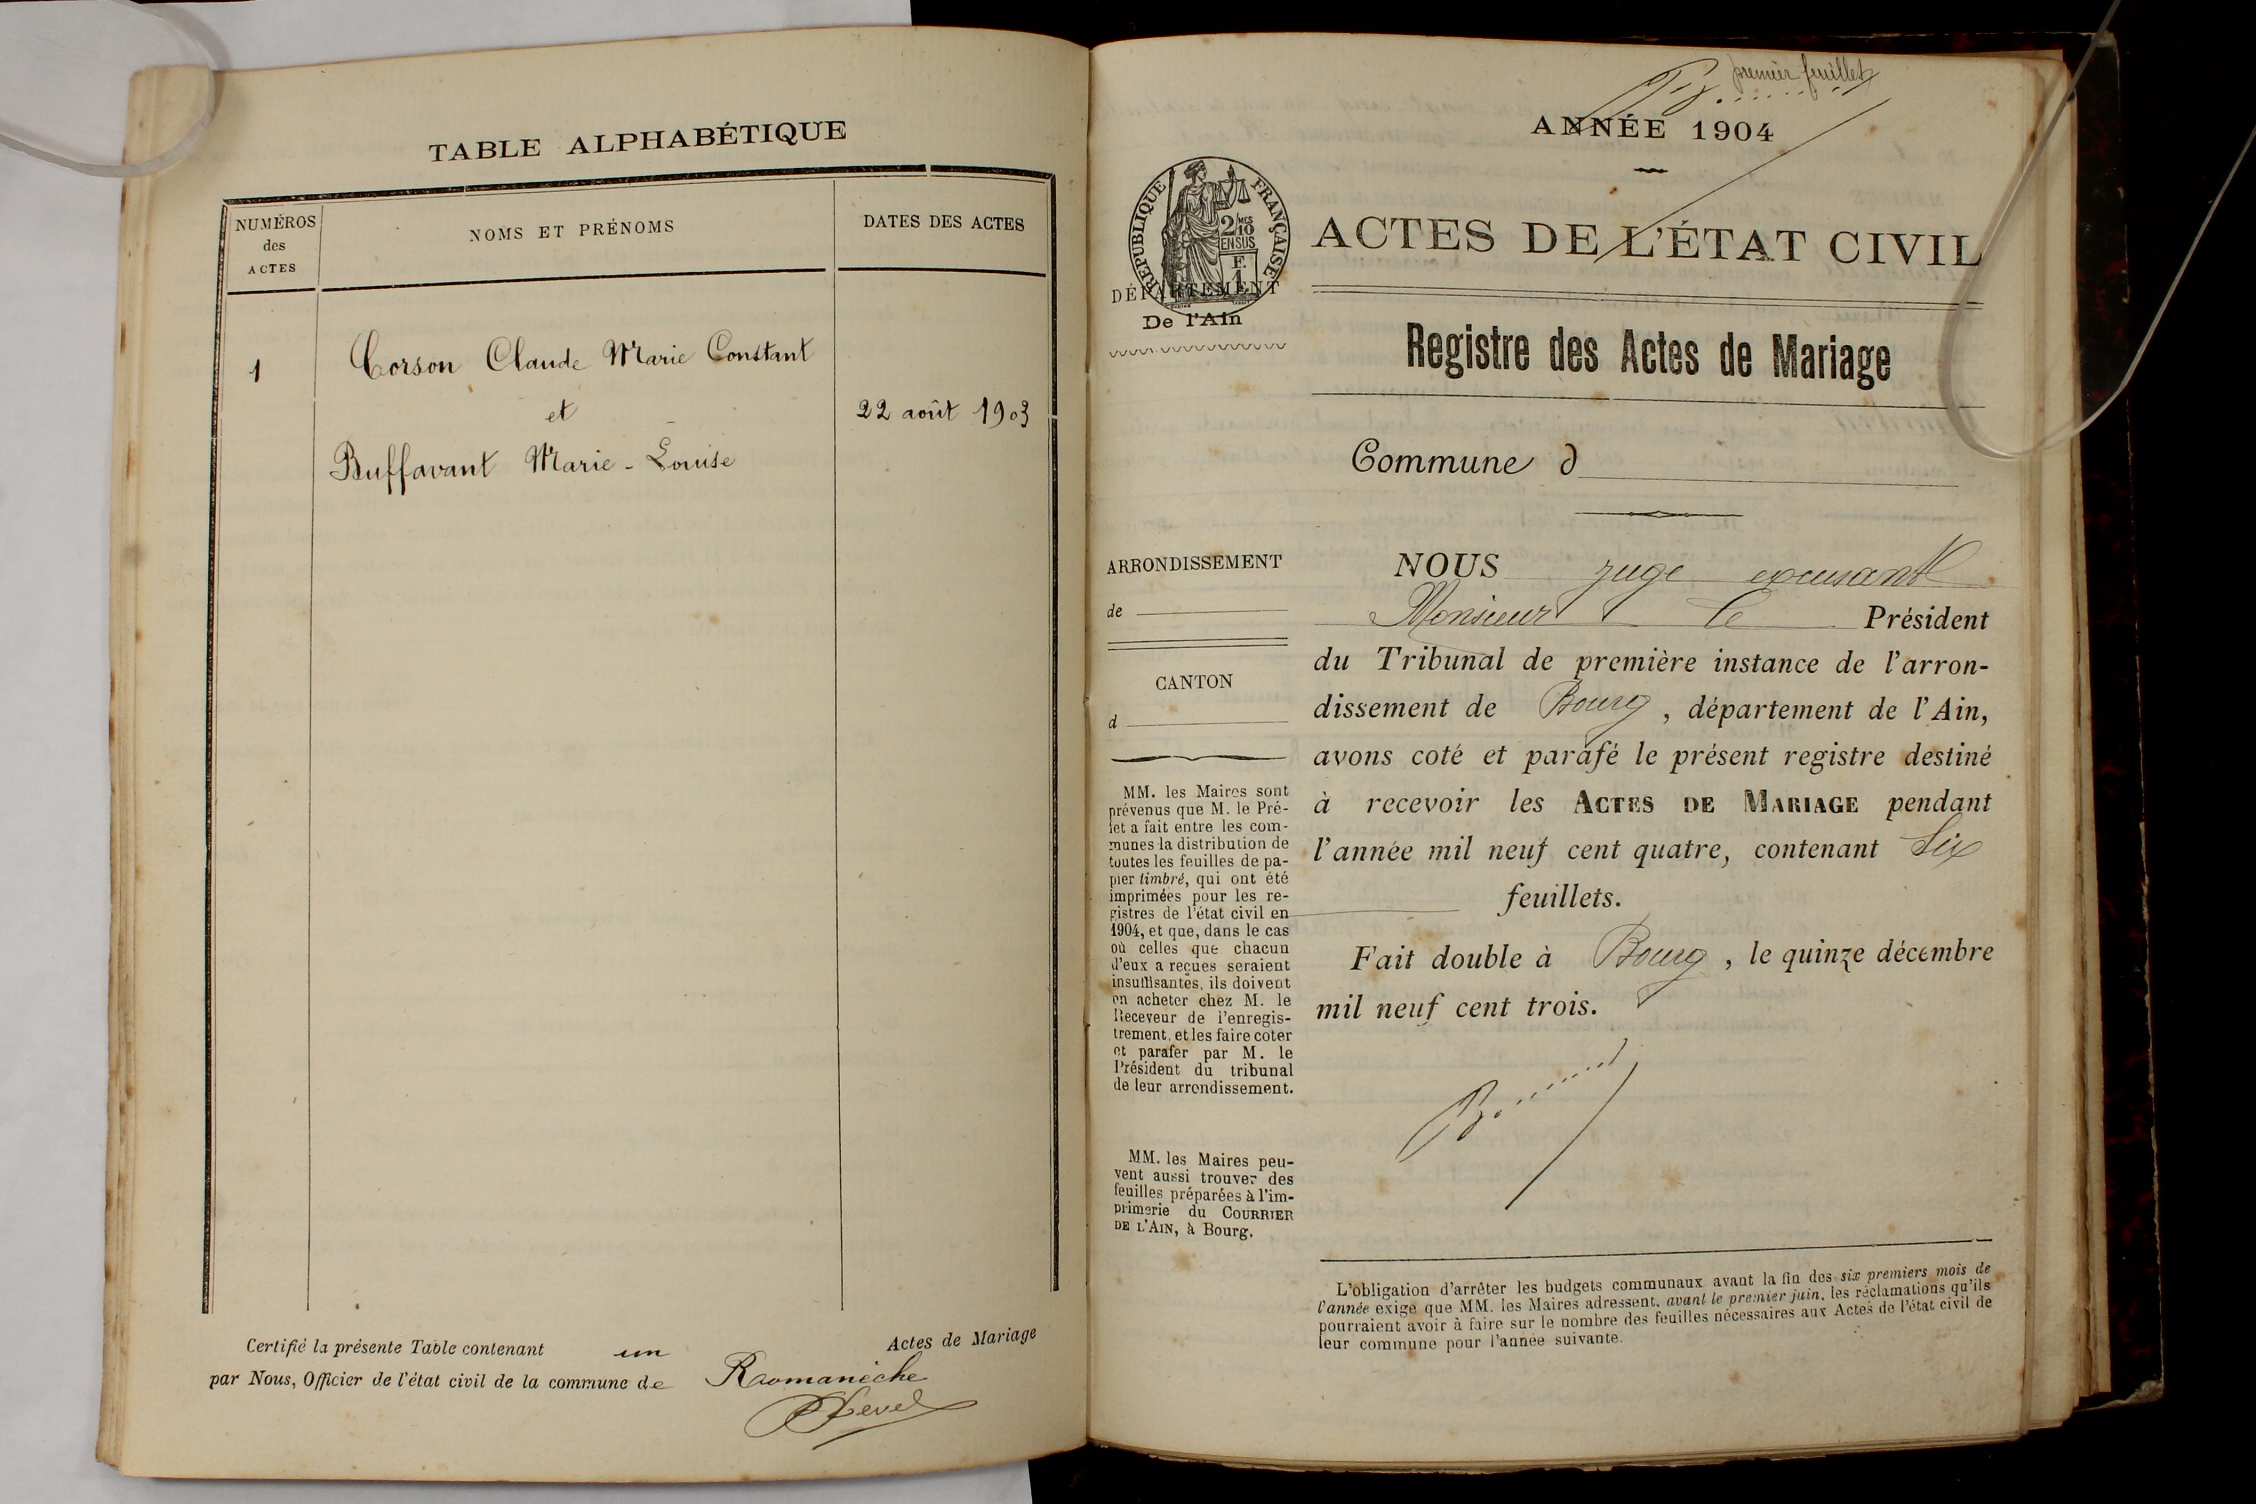 TABLE ALPHABÉTIQUE
NUMÉROS
des
ACTES
NOMS ET PRÉNOMS
DATES DES ACTES
1
Corson Claude Marie Constant
et
22 août 1903
Buffavant Marie-Louise
Certifié la présente Table contenant un Actes de Mariage
par Nous, Officier de l'état civil de la commune de Romanèche
premier feuillet
ANNÉE 1904
RÉPUBLIQUE FRANÇAISE
2/10
EN SUS
F.
1
ACTES DE L'ÉTAT CIVIL
DÉPARTEMENT
De l'Ain
Registre des Actes de Mariage
Commune d
ARRONDISSEMENT
de
CANTON
d
MM. les Maires sont
prévenus que M. le Pré-
fet a fait entre les com-
munes la distribution de
toutes les feuilles de pa-
pier timbré, qui ont été
imprimées pour les re-
gistres de l'état civil en
1904, et que, dans le cas
où celles que chacun
d'eux a reçues seraient
insuffisantes, ils doivent
en acheter chez M. le
Receveur de l'enregis-
trement, et les faire coter
et parafer par M. le
Président du tribunal
de leur arrondissement.
MM. les Maires peu-
vent aussi trouver des
feuilles préparées à l'im-
primerie du COURRIER
DE L'AIN, à Bourg.
NOUS juge excusant
Monsieur le Président
du Tribunal de première instance de l'arron-
dissement de Bourg, département de l'Ain,
avons coté et parafé le présent registre destiné
à recevoir les ACTES DE MARIAGE pendant
l'année mil neuf cent quatre, contenant Six
feuillets.
Fait double à Bourg, le quinze décembre
mil neuf cent trois.
L'obligation d'arrêter les budgets communaux avant la fin des six premiers mois de
l'année exige que MM. les Maires adressent, avant le premier juin, les réclamations qu'ils
pourraient avoir à faire sur le nombre des feuilles nécessaires aux Actes de l'état civil de
leur commune pour l'année suivante.